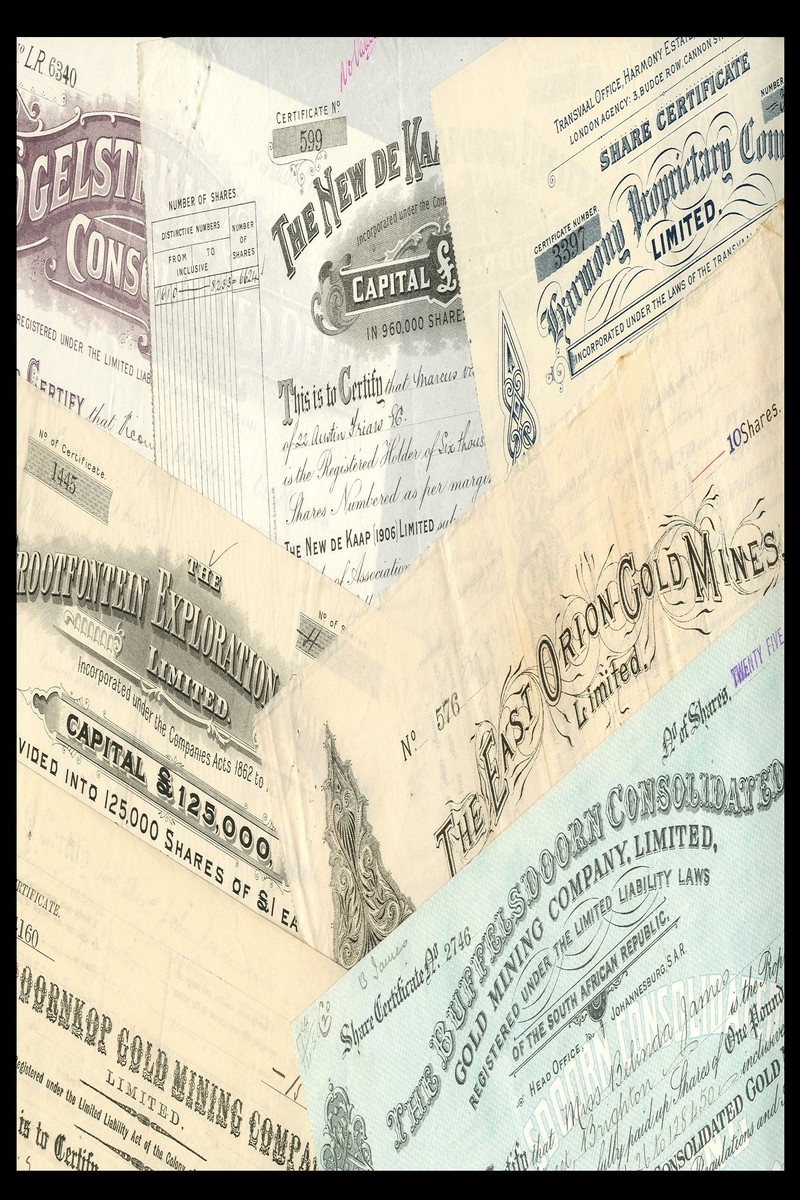 Nº LR 6340
OGELSTR
CONS
REGISTERED UNDER THE LIMITED LIAB
CERTIFY that
No Value
CERTIFICATE Nº
599
THE NEW DE KAA
Incorporated under the Com
CAPITAL £
IN 960.000 SHARES
NUMBER OF SHARES
DISTINCTIVE NUMBERS
FROM TO
INCLUSIVE
NUMBER
OF
SHARES
This is to Certify that Marcus
of 22 Austin Friars EC.
is the Registered Holder of Six thous
Shares Numbered as per margi
THE NEW DE KAAP (1906) LIMITED subj
of Association
TRANSVAAL OFFICE, HARMONY ESTAT
LONDON AGENCY: 3, BUDGE ROW, CANNON S
SHARE CERTIFICATE
NUMBER
CERTIFICATE NUMBER
3397
Harmony Proprietary Com
LIMITED.
INCORPORATED UNDER THE LAWS OF THE TRANSVAA
Nº of Certificate.
1445
THE
ROOTFONTEIN EXPLORATION
LIMITED.
Nº of S
Incorporated under the Companies Acts 1862 to
CAPITAL £125,000,
VIDED INTO 125,000 SHARES OF £1 EA
10 Shares.
Nº 576
THE EAST ORION GOLD MINES,
Limited.
ERTIFICATE.
160
OORNKOP GOLD MINING COMPA
LIMITED.
Registered under the Limited Liability Act of the Colony
is to Certify
Nº of Shares, TWENTY FIVE
Share Certificate Nº 2746
THE BUFFELSDOORN CONSOLIDATED
GOLD MINING COMPANY, LIMITED,
REGISTERED UNDER THE LIMITED LIABILITY LAWS
OF THE SOUTH AFRICAN REPUBLIC.
HEAD OFFICE, JOHANNESBURG, S.A.R.
tify that Miss Belinda James is the Prop
Brighton
fully paid up Shares of One Pound
inclusive
CONSOLIDATED GOLD
Regulations and